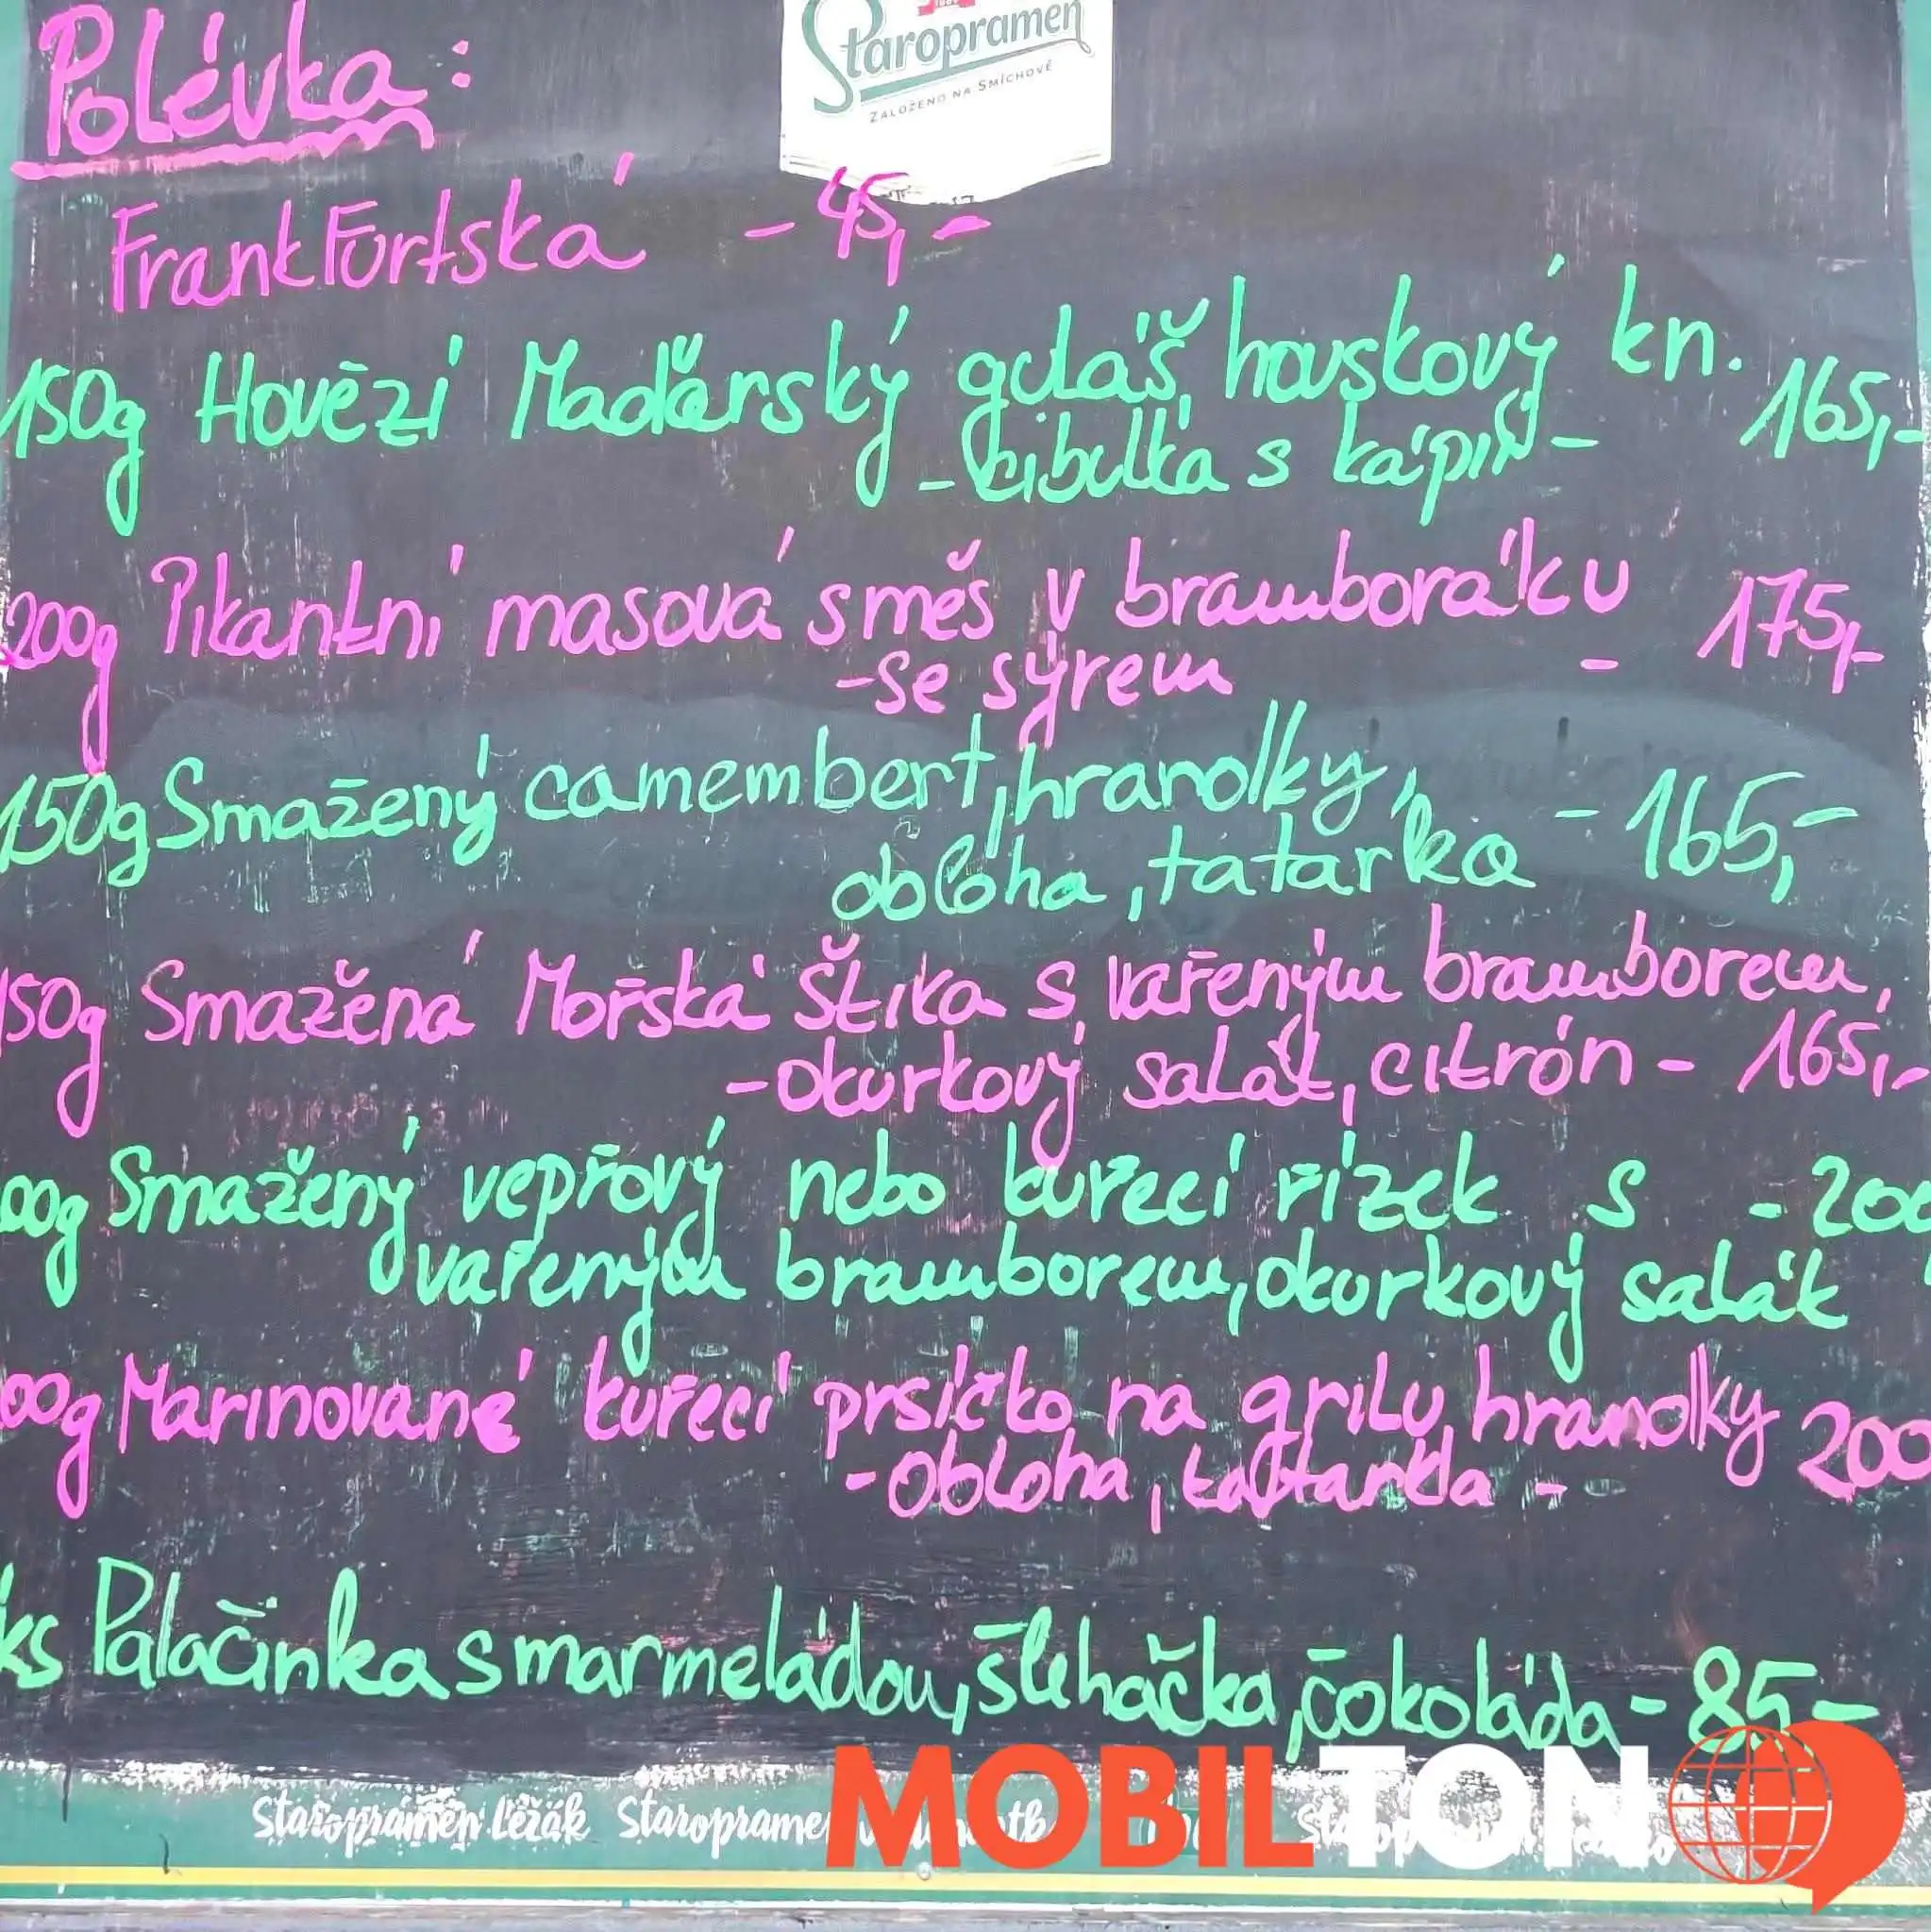 Staropramen
ZALOŽENO NA SMÍCHOVĚ
Polévka:
Frankfurtská - 45,-
150g Hovězí Maďarský guláš, houskový kn. 165,-
- cibulka s kápií -
200g Pikantní masová směs v bramboráku - 175,-
- se sýrem
150g Smažený camembert, hranolky, - 165,-
obloha, tatarka
150g Smažená Mořská štika s vařeným bramborem,
- okurkový salát, citrón - 165,-
00g Smažený vepřový nebo kuřecí řízek s - 200
vařeným bramborem, okurkový salát
00g Marinované kuřecí prsíčko na grilu, hranolky 200
- obloha, tatarka -
ks Palačinka s marmeládou, šlehačka, čokoláda - 85,-
Staropramen Ležák Staropramen
MOBILTON